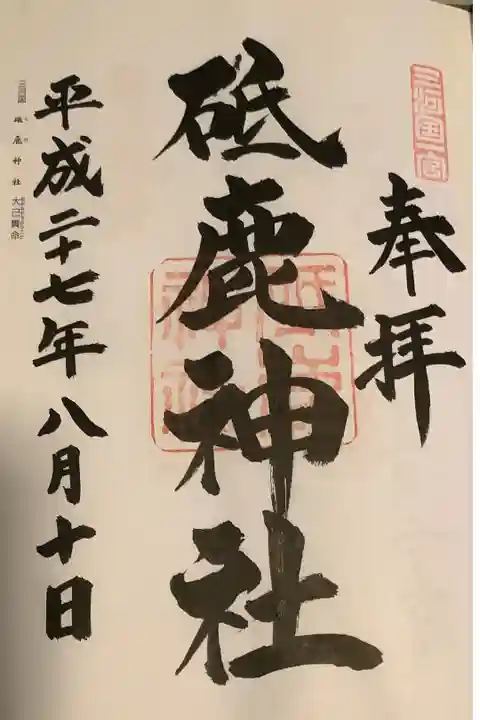 三河国一宮
奉拝
砥鹿神社
砥鹿神社
平成二十七年八月十日
三河国 砥鹿神社 大己貴命